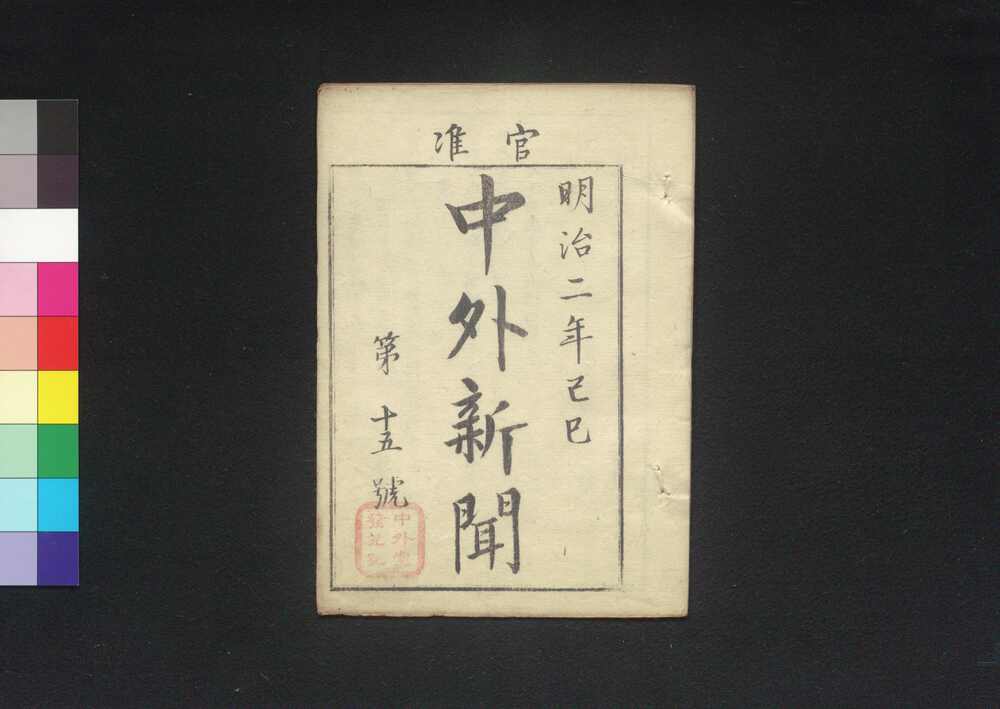 官准
明治二年己巳
中外新聞
第十五號
中外堂
發兌記